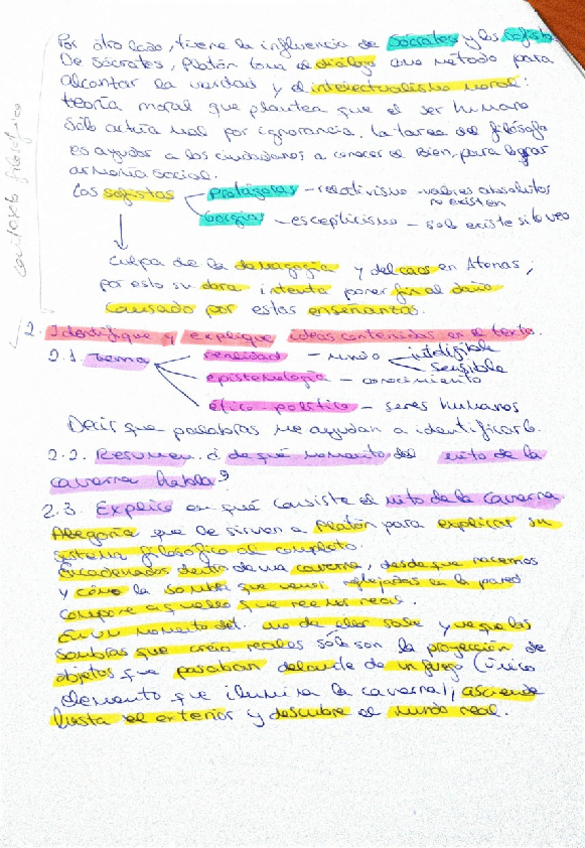 Por otro lado, tiene la influencia de Sócrates y los sofistas
De Sócrates, Platón toma el diálogo como método para
alcanzar la verdad y el intelectualismo moral:
teoría moral que plantea que el ser humano
sólo actúa mal por ignorancia. La tarea del filósofo
es ayudar a los ciudadanos a conocer el Bien, para lograr
armonía social.
Los sofistas
Protágoras - relativismo - valores absolutos
no existen
Gorgias - escepticismo - solo existe si lo veo
Culpa de la demagogia y del caos en Atenas,
por esto su obra intenta poner fin al daño
causado por estas enseñanzas.
contexto filosófico
2. Identifique y explique ideas contenidas en el texto.
2.1. Tema
realidad - mundo inteligible
sensible
epistemología - conocimiento
ético-político - seres humanos
Decir que palabras me ayudan a identificarlo.
2.2. Resumen. ¿de qué momento del mito de la
caverna habla?
2.3. Explico en qué consiste el mito de la caverna
Alegoría que le sirven a Platón para explicar su
sistema filosófico al completo.
Encadenados dentro de una caverna, desde que nacemos
y cómo la sombra que vemos reflejadas en la pared
compone aquello que creemos real.
En un momento det. uno de ellos sale y ve que las
sombras que creía reales sólo son la proyección de
objetos que pasaban delante de un fuego (único
elemento que ilumina la caverna), asciende
hasta el exterior y descubre el mundo real.